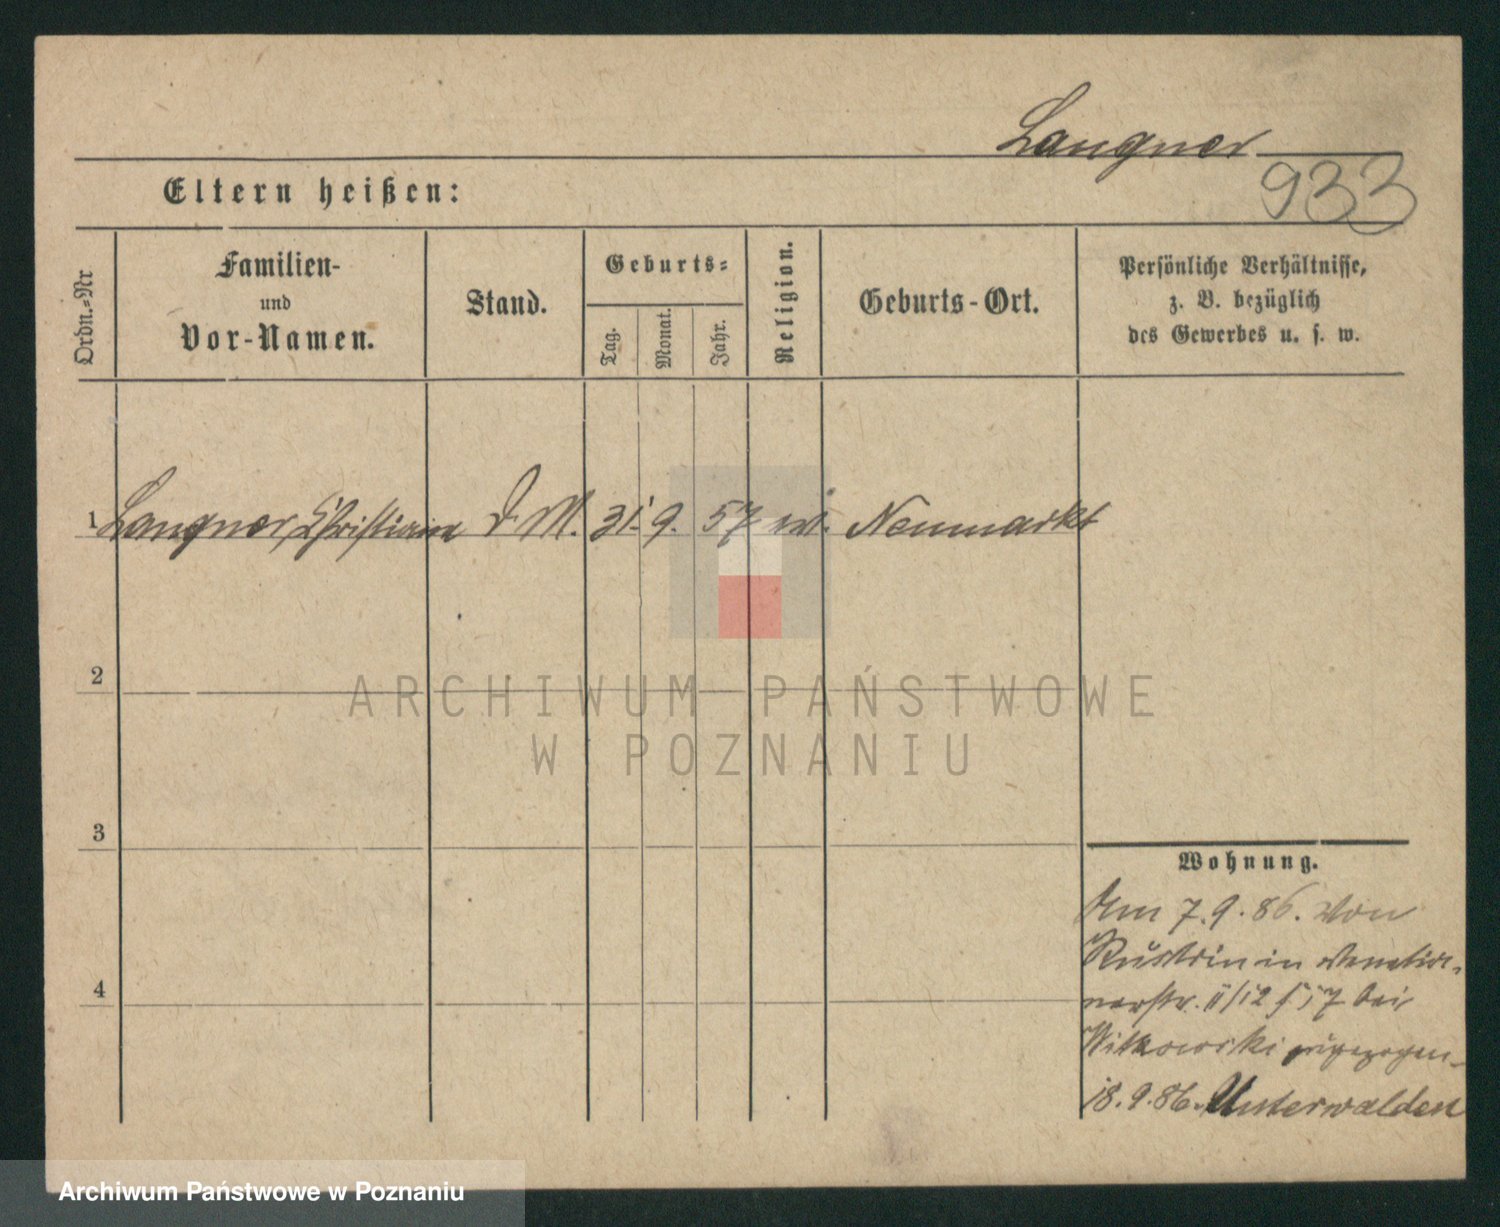 Langner
933
Eltern heißen:
Ordn.-Nr
Familien-
und
Vor-Namen.
Stand.
Geburts-
Tag.
Monat.
Jahr.
Religion.
Geburts-Ort.
Persönliche Verhältnisse,
z. B. bezüglich
des Gewerbes u. s. w.
1 Langner, Christiane d. M. 31. 9. 57 Neumarkt
2
3
4
Wohnung.
Am 7.9.86. von
Küstrin in
bei
Witkowski zugezogen
18.9.86. Unterwalden
ARCHIWUM PAŃSTWOWE
W POZNANIU
Archiwum Państwowe w Poznaniu